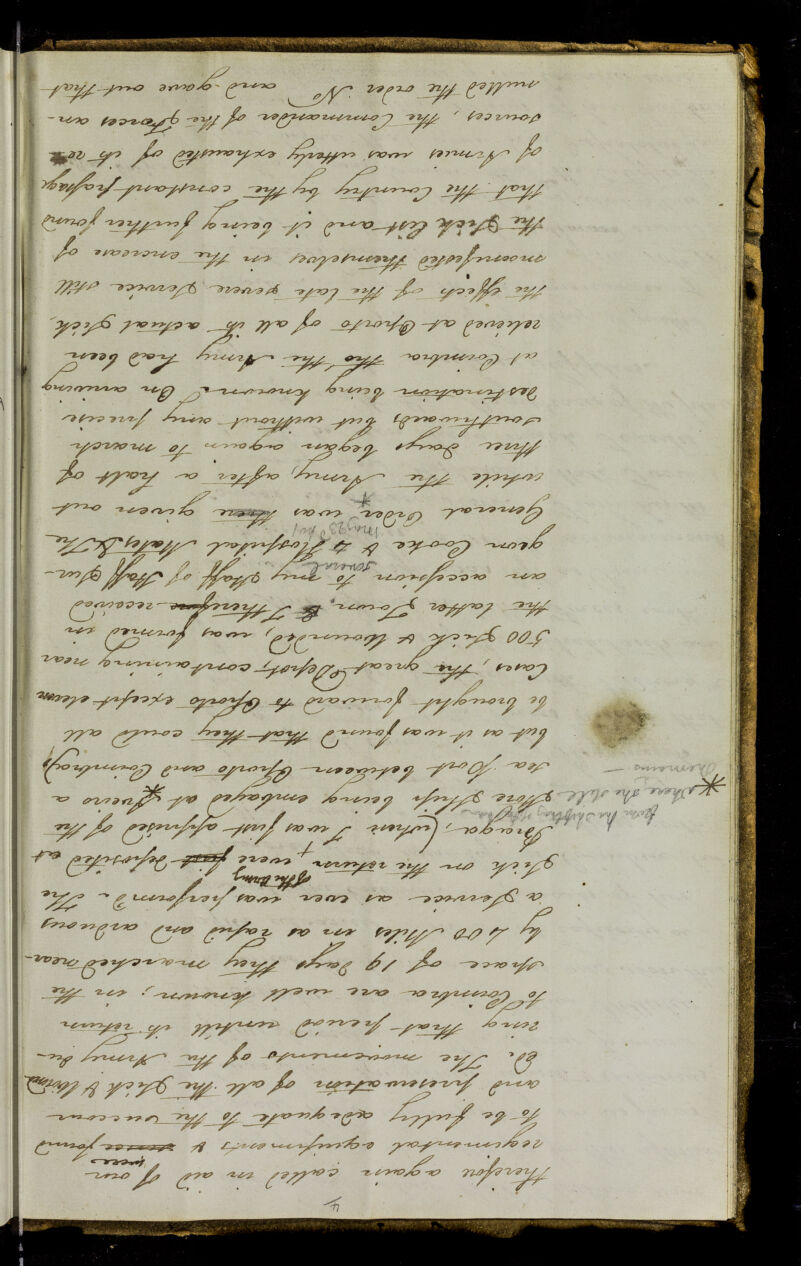 4
therefore again called in aid of our
were
regimental equipments & found
to be fully adequate to the succour
and preservation of all the Sick & Wound
ed. The movements of the Army du-
ring that period untill its return
to Coimbra are well known; in the
space of 19 days they marched near-
ly Miles in as rapid and arduous
a Service as ever was perform'd. The
of the Army
Sick on the return were first deposited at
Braga, (when I was first apprised of the
from the shipping
Store Ship being embayed at Aveiro a
* where she still
remains —
sea Port between Oporto and Coimbra)
but as it was found that they could all
be brought forward to Oporto except eleven
Cases, the great Depot, containing near
500 Sick & Wounded, was formed in
the latter Town. I therefore received
an accession to my Staff of Staff Sur-
several
geon Cooke & Hospital Mates & The
May 23d
General Order * was there given out
while the Army, after a halt of
three days began again to march
southwards but without any precise
destination being known. On arriving
at Coimbra tho' the Army had been
relieved at Oporto of all its actual Sick,
the effects of the late severe Service still
manifested themselves in the encrease of
the Sick list and it being further found
that the Country by the constant passage
of Armies was utterly exhausted of its re-
sources, the Commander of the Forces an-
nulled the order No and gave out that